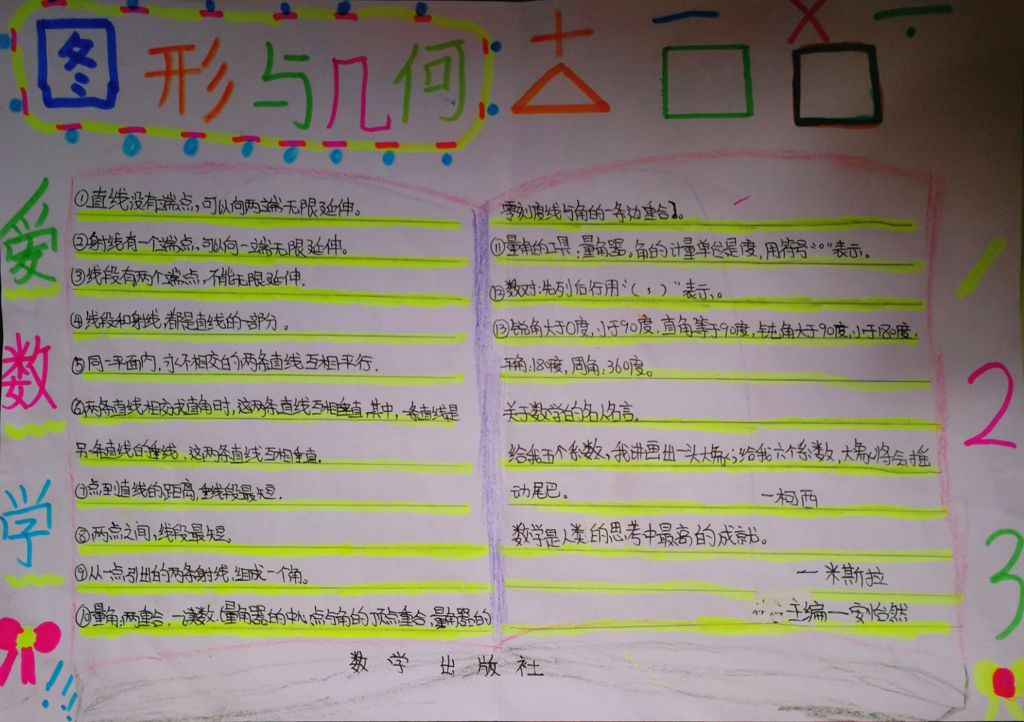 图形与几何
+ − × ÷
爱数学
!!!
1
2
3
①直线没有端点,可以向两端无限延伸。
②射线有一个端点,可以向一端无限延伸。
③线段有两个端点,不能无限延伸.
④线段和射线,都是直线的一部分。
⑤同一平面内,永不相交的两条直线互相平行.
⑥两条直线相交成直角时,这两条直线互相垂直,其中,一条直线是
另条直线的垂线,这两条直线互相垂直.
⑦点到直线的距离,垂线段最短.
⑧两点之间,线段最短。
⑨从一点引出的两条射线,组成一个角。
⑩量角,两重合,一读数.(量角器的中心点与角的顶点重合,量角器的
零刻度线与角的一条边重合)。
⑪量角的工具:量角器。角的计量单位是度,用符号“°”表示。
⑫数对:先列后行用“( , )”表示。
⑬锐角大于0度,小于90度,直角等于90度,钝角大于90度,小于180度.
平角:180度,周角:360度。
关于数学的名人名言。
给我五个系数,我讲画出一头大象;给我六个系数,大象将会摇
动尾巴。 一柯西
数学是人类的思考中最高的成就。
一米斯拉
主编一安怡然
数学出版社